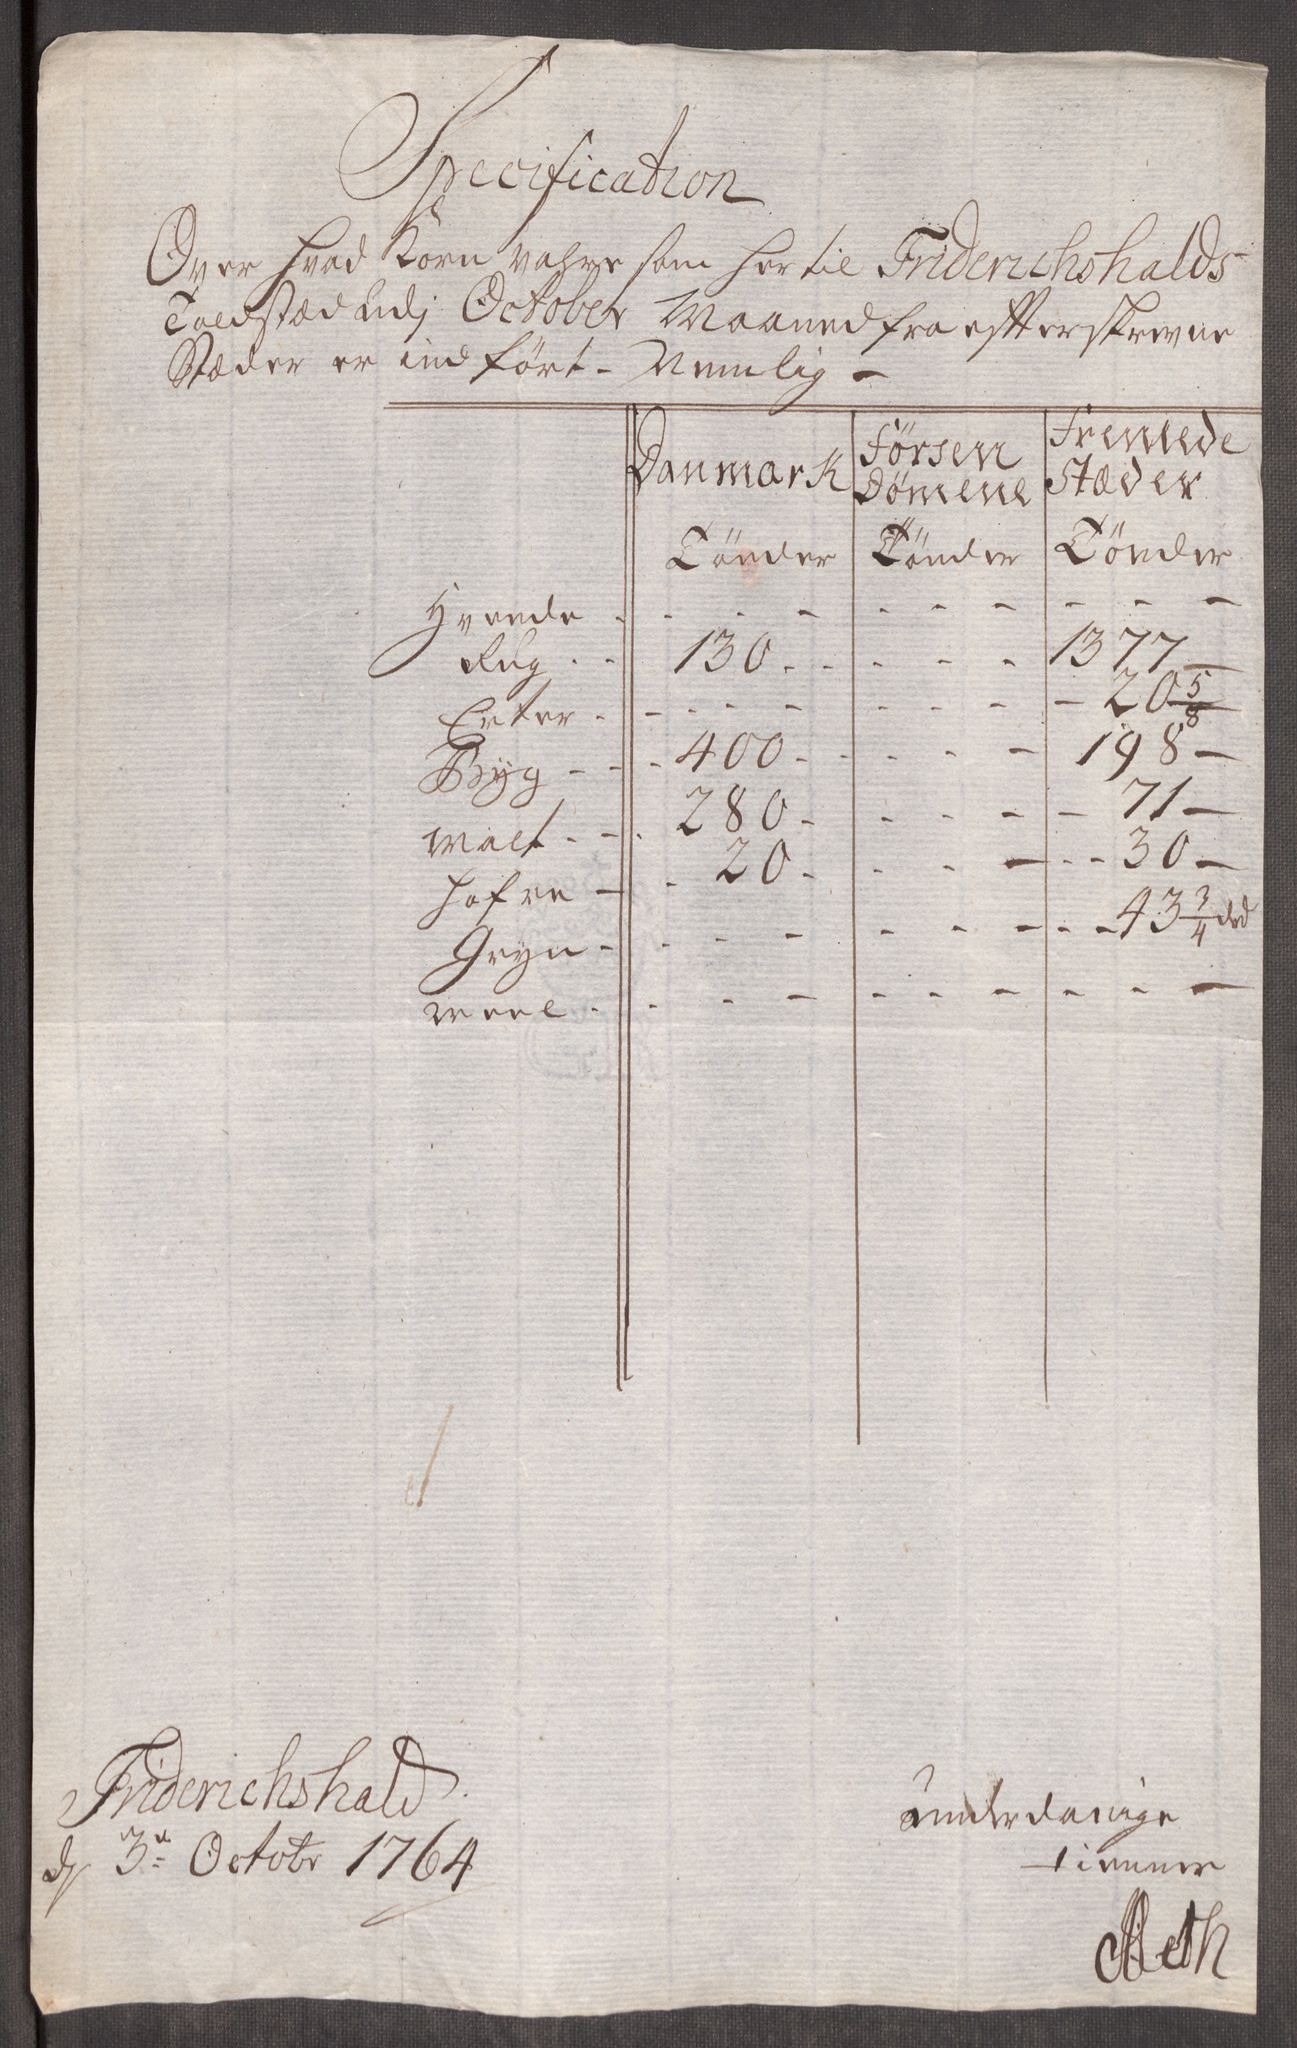 Specification
Over hvad Korn vahre som her til Friderichshalds
Toldstæd udj October Maaned fra efterskrevne
Stæder er indført - Nemlig -
Danmark Försten Dömene Fremede Stæder
Tönder Tönder Tönder
Hvede - - - - - - - - -
Rug - - 130 - - - - - 1377 -
Erter - - - - - - - - - 20 5/8
Byg - - - 400 - - - - - 198 -
Malt - - - 280 - - - - - 71 -
Hafre - - 20 - - - - - - 30 -
Gryn - - - - - - - - - 43 3/4
Meel - - - - - - - - - -
Friderichshald
d 3de Octobr 1764
underdanige
tienner